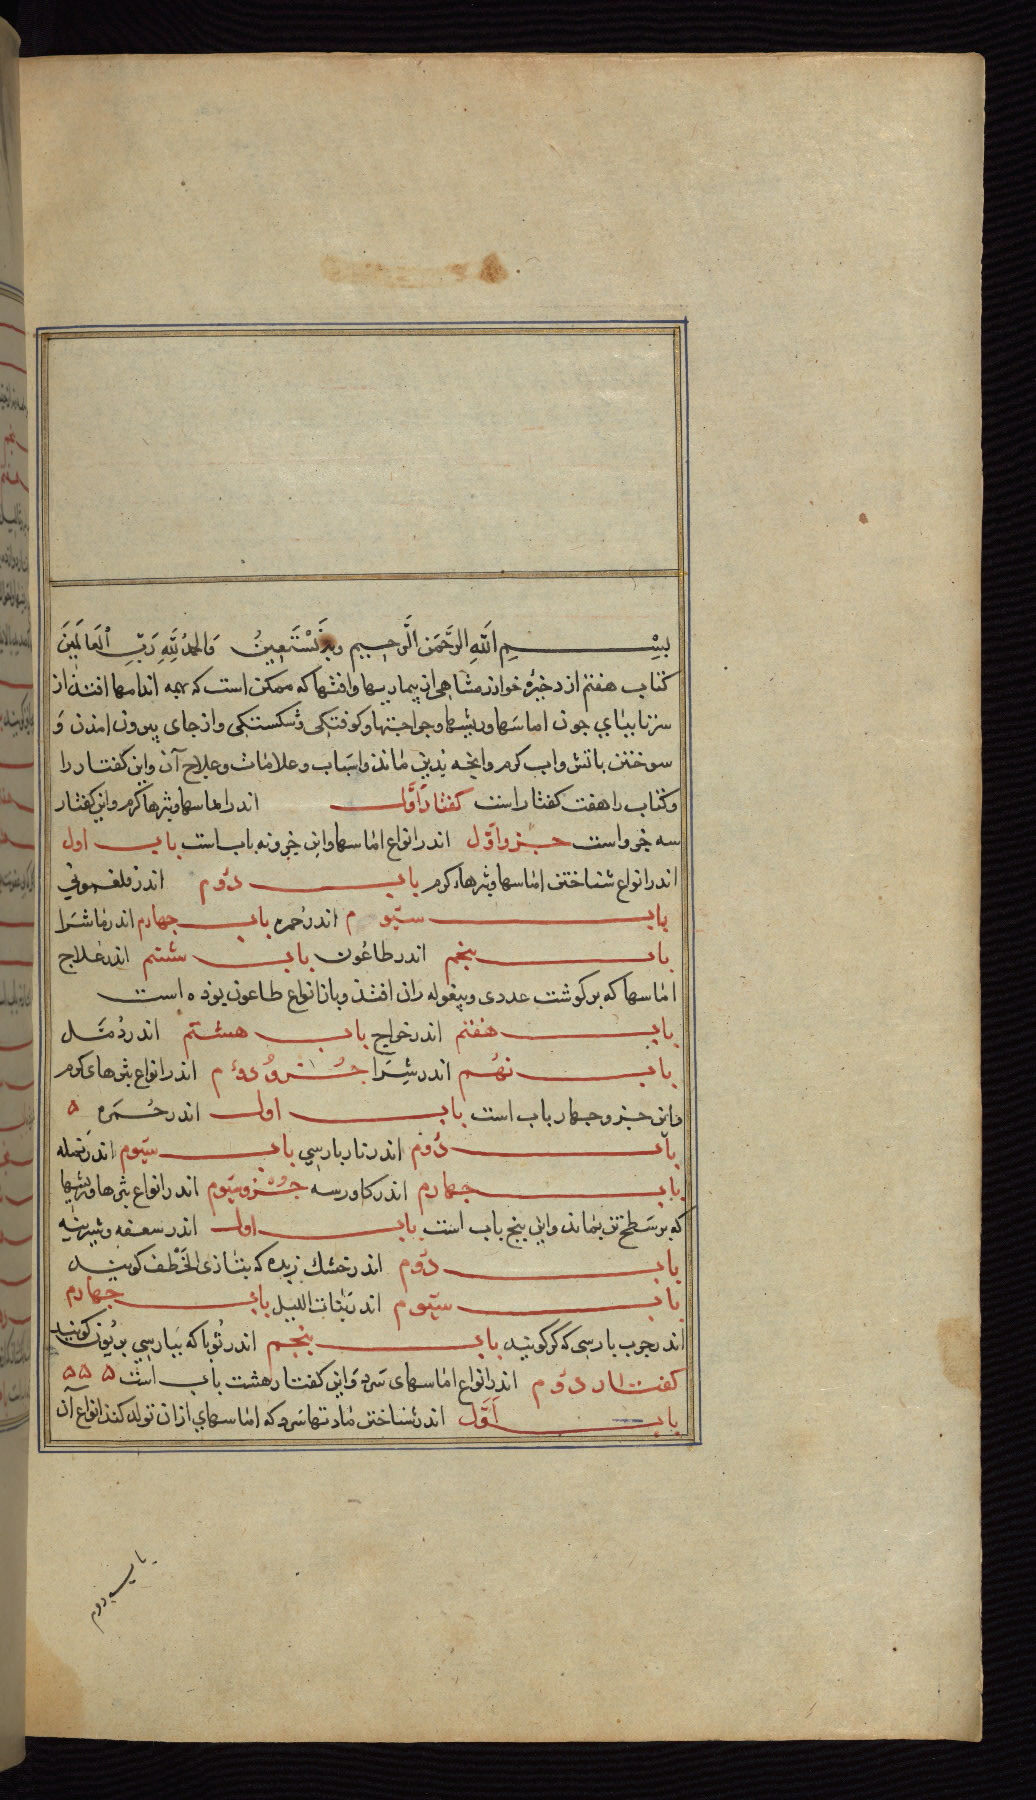 بسم الله الرحمن الرحيم وبه نستعين والحمد لله رب العالمين
كتاب هفتم از ذخيره خوارزمشاهى اندر بيماريها وافتها كه ممكن است كه بهمه اندامها افتذ از
سر تا بپاي جون اماسها وريشها وجراحتها وكوفتكى وشكستكى واز جاى بيرون امذن و
سوختن باتش واب كرم وانجه بذين مانذ واسباب وعلامات وعلاج آن واين كفتار را
وكتاب را هفت كفتار است كفتار اول اندر اماسها وبثرها كرم واين كفتار
سه جزو است جزو اول اندر انواع اماسها واين جزو نه باب است باب اول
اندر انواع شناختن اماسها وبثرهاء كرم باب دوم اندر فلغمونى
باب سيوم اندر حمره باب جهارم اندر ماشرا
باب پنجم اندر طاعون باب ششم اندر علاج
اماسها كه بر كوشت عددى وبيغوله ران افتذ وباز انواع طاعون بوذه است
باب هفتم اندر خراج باب هشتم اندر دمل
باب نهم اندر شرا جزو دوم اندر انواع بثرهاى كرم
واين جزو جهار باب است باب اول اندر حمره ۵
باب دوم اندر نار بارسي باب سيوم اندر نمله
باب جهارم اندر كاورسه جزو سيوم اندر انواع بثرها وريشها
كه بر سطح تن بماند واين پنج باب است باب اول اندر سعفه وشيرينه
باب دوم اندر خشك زيده كه بتازى الخطف كويند
باب سيوم اندر بنات الليل باب جهارم
اندر جرب بارسى كه كر كويند باب پنجم اندر ثوبا كه ببارسي بريون كويند
كفتار دوم اندر انواع اماسهاى سرد واين كفتار هشت باب است ۵ ۵ ۵
باب اول اندر شناختن مادتها سرد كه اماسهاي ازان تولد كنذ انواع آن